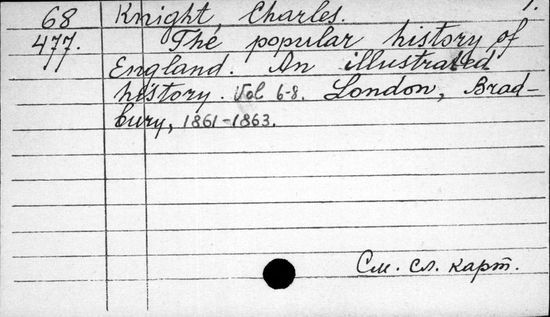 68 Knight, Charles. 1.
477. The popular history of
England. An illustrated
history. Vol 6-8. London, Brad-
bury, 1861-1863.
См. сл. карт.